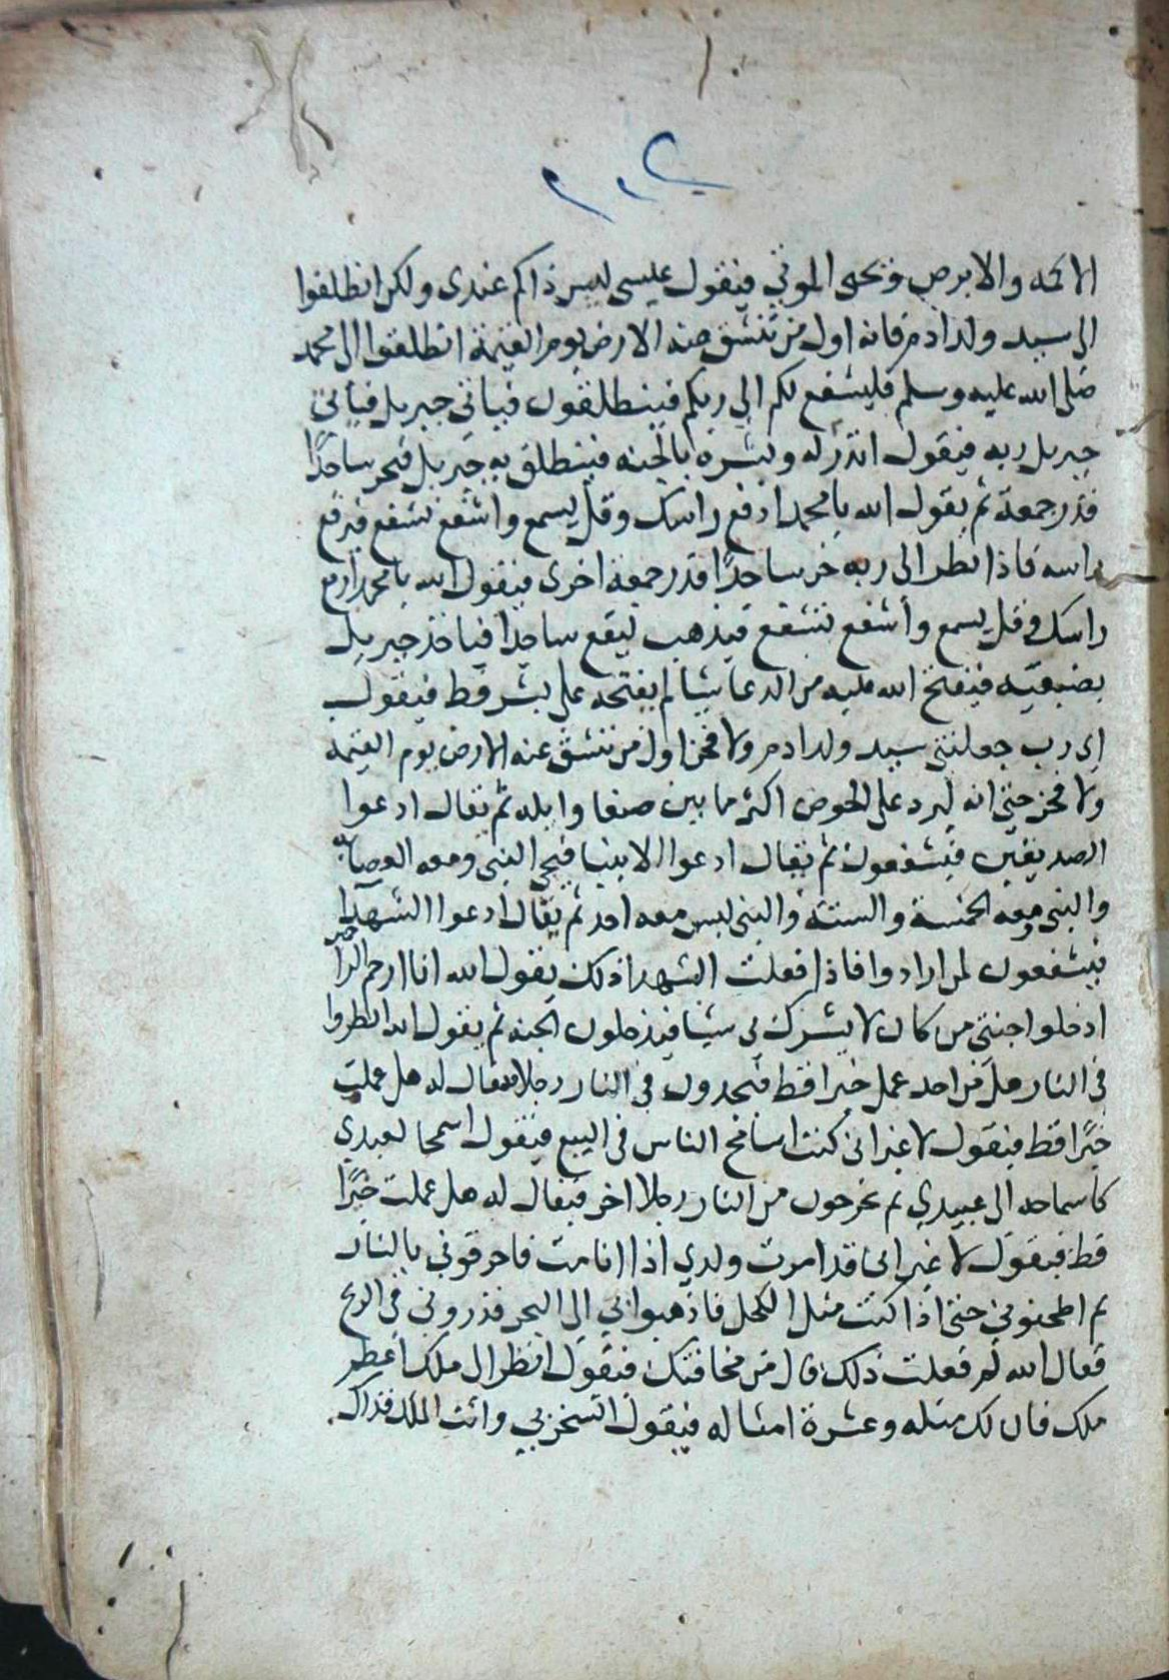 ٢٠٢
الاكمه والابرص وتحى الموتى فيقول عيسى ليس ذاكم عندى ولكن انطلقوا
الى سيد ولد ادم فانه اول من تنشق عنه الارض يوم القيمة انطلقوا الى محمد
صلى الله عليه وسلم فليشفع لكم الى ربكم فينطلقون فياتى جبريل فياتى
جبريل ربه فيقول ائذن له وبشره بالجنه فينطلق به جبريل فيخر ساجدًا
قدر جمعة ثم يقول الله يا محمد ارفع راسك وقل يسمع واشفع تشفع فيرفع
راسه فاذا نظر الى ربه خر ساجدًا قدر جمعة اخرى فيقول الله يا محمد ارفع
راسك وقل يسمع واشفع تشفع فيذهب ليقع ساجدا فياخذ جبريل
بضبعيه فيفتح الله عليه من الدعا شيا لم يفتحه على بشر قط فيقول
اى رب جعلتنى سيد ولد ادم ولا فخر اول من تنشق عنه الارض يوم القيمه
ولا فخر حتى انه ليرد على الحوض اكثر ما بين صنعا وايله ثم يقال ادعوا
الصديقين فيشفعون ثم يقال ادعوا الانبيا فيجى النبى ومعه العصابه
والنبى ومعه الخمسة والستة والنبى ليس معه احد ثم يقال ادعوا الشهدا
فيشفعون لمن ارادوا فاذا فعلت الشهدا ذلك يقول الله انا ارحم الراحمين
ادخلوا جنتى من كان لا يشرك بى شيا فيدخلون الجنه ثم يقول الله انظروا
فى النار هل من احد عمل خيرا قط فيجدون فى النار رجلا فيقال له هل عملت
خيرًا قط فيقول لا غير انى كنت اسامح الناس فى البيع فيقول اسمحا لعبدي
كاسماحه الى عبيدي ثم يخرجون من النار رجلا اخر فيقال له هل عملت خيرًا
قط فيقول لا غير انى قد امرت ولدي اذا انا مت فاحرقوني بالنار
ثم اطحنوني حتى اذا كنت مثل الكحل فاذهبوا بي الى البحر فذروني في الريح
فقال الله لم فعلت ذلك قال من مخافتك فيقول انظر الى ملك اعظم
ملك فان لك مثله وعشرة امثاله فيقول اتسخر بي وانت الملك فذاك